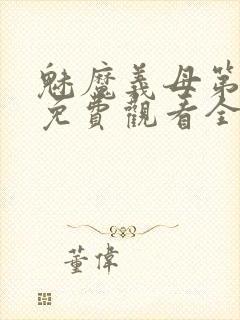 魅魔義母第
免費觀看全
董偉